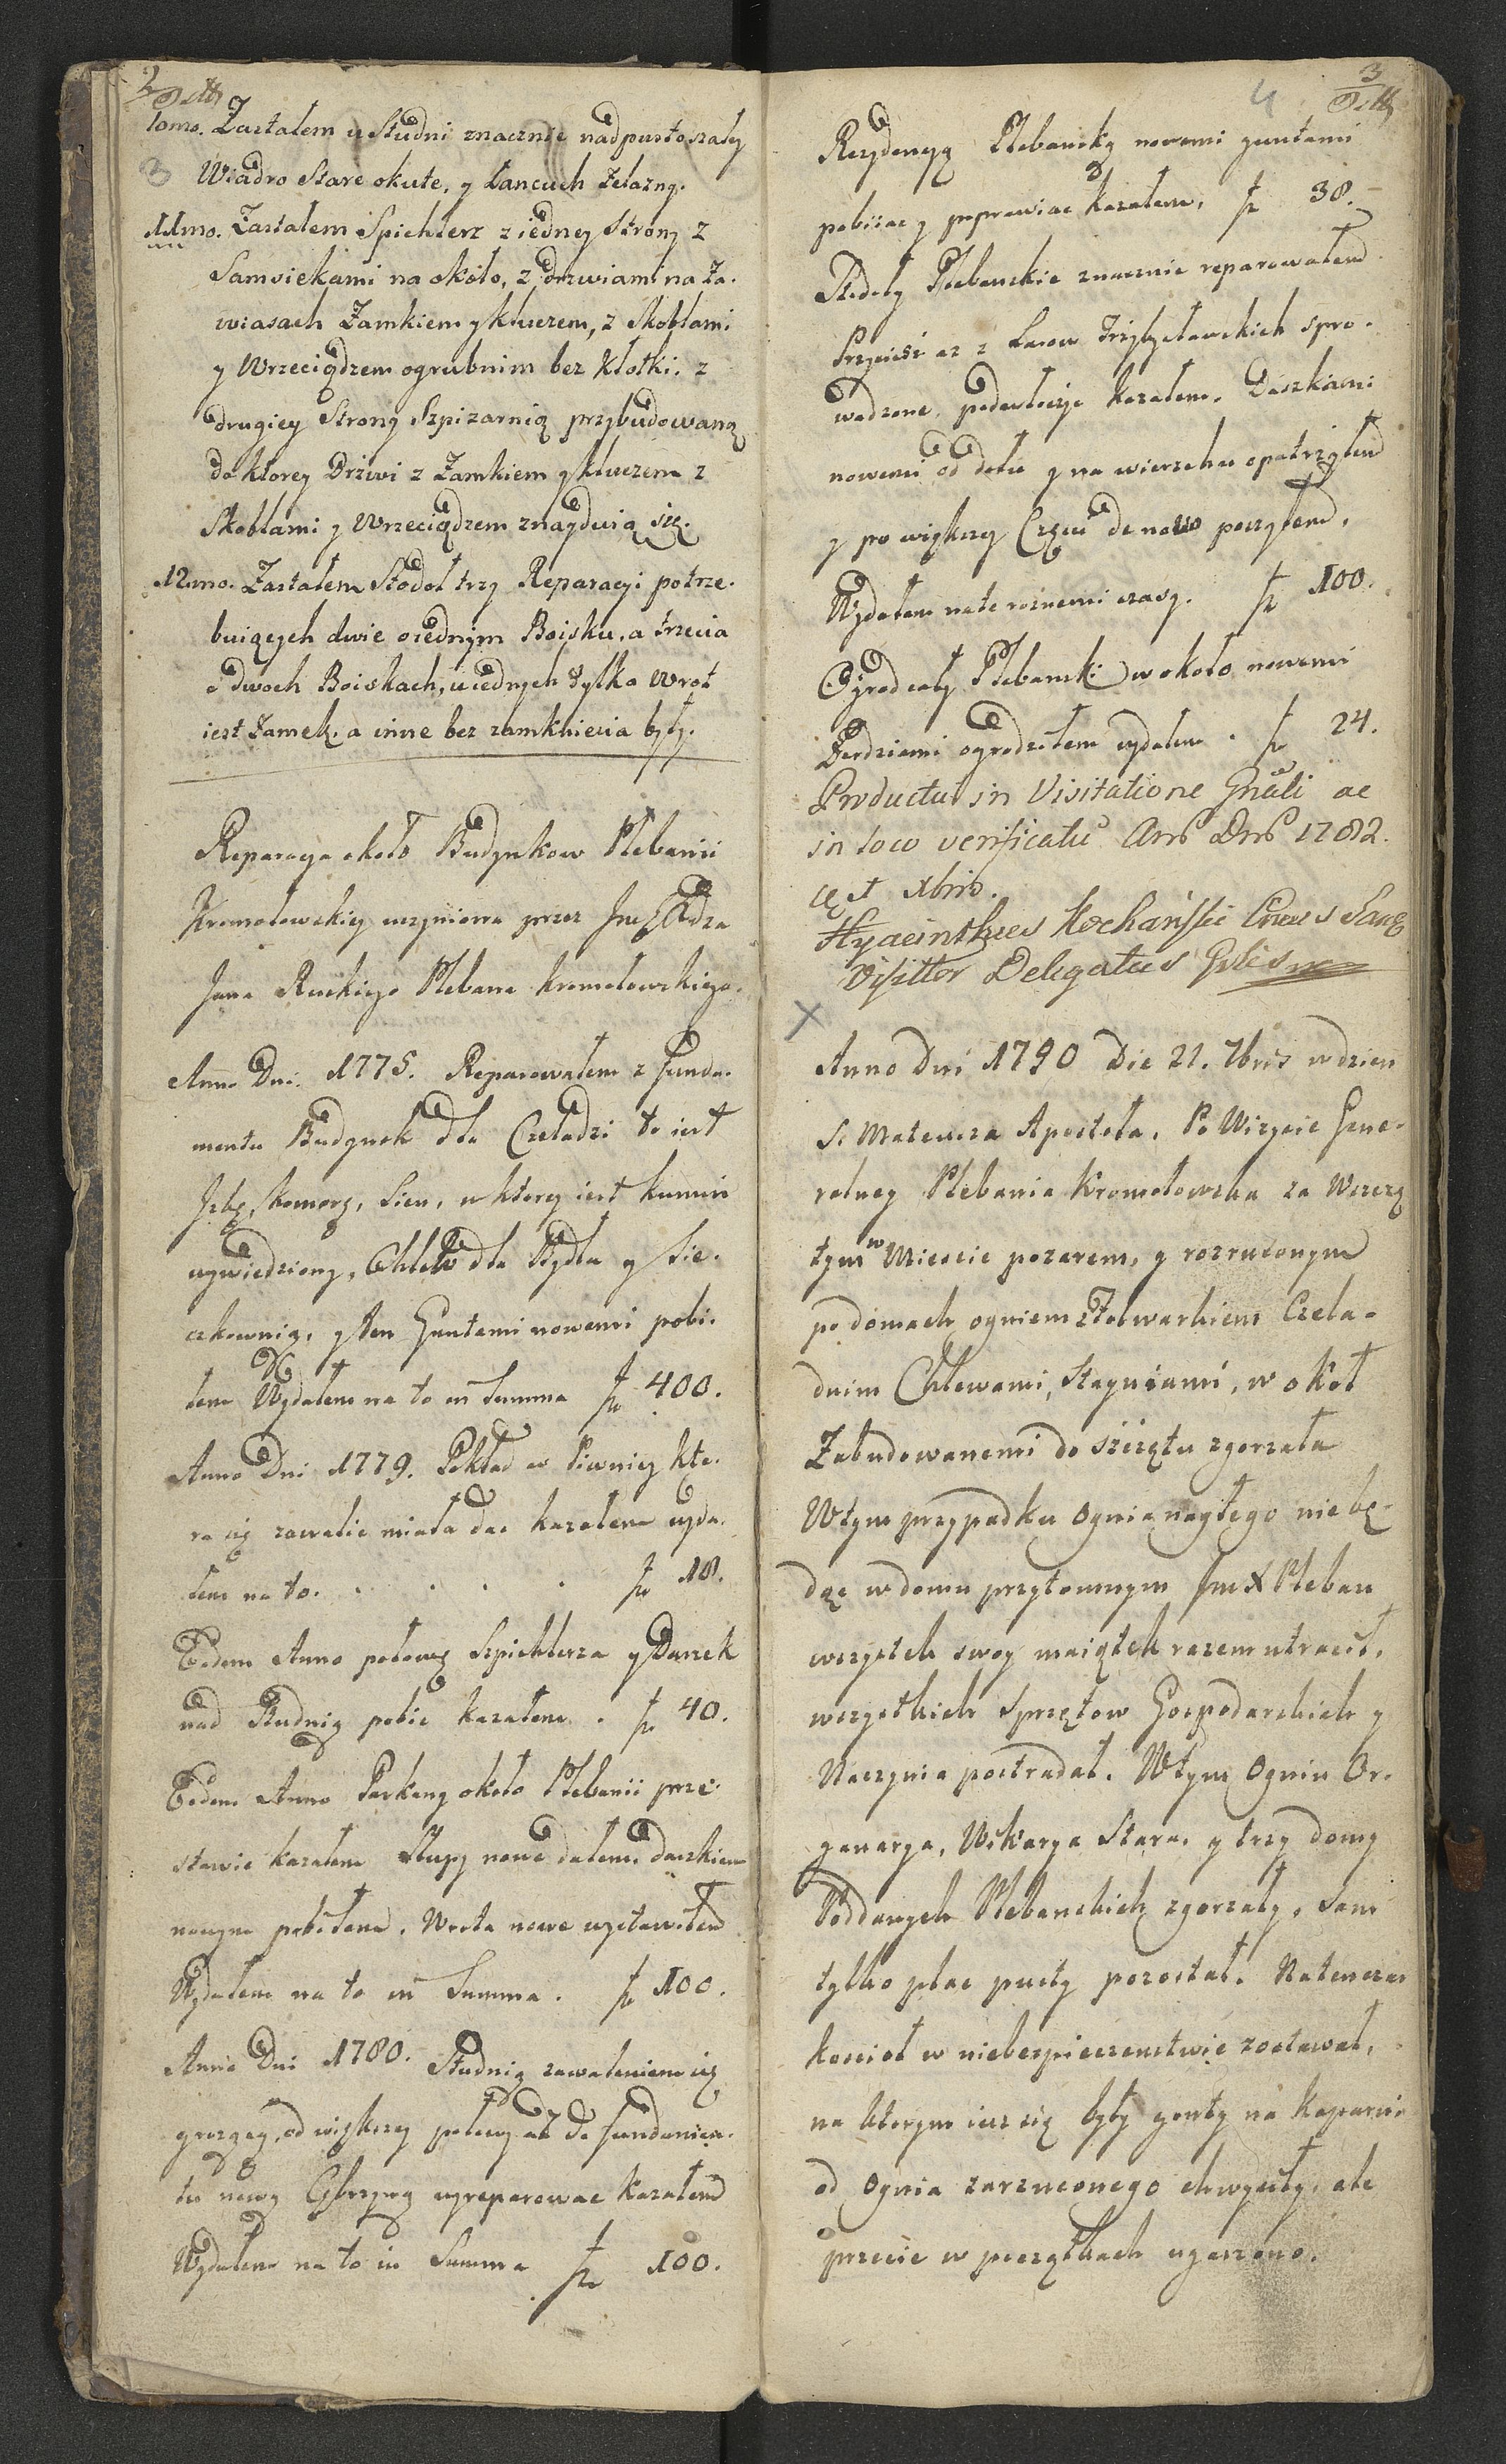 2
10mo. Zastałem u Studni znacznie nadpustoszały
3 Wiadro Stare okute, y Łancuch żelazny.
11mo. Zastałem Spichlerz z iedney Strony z
Samsiekami na około, z drzwiami na Za-
wiasach Zamkiem y kluczem, z Skoblami
y Wrzeciądzem ogrubnim bez Kłotki. z
drugiey Strony Szpizarnią przybudowaną
do ktorey Drzwi z Zamkiem y kluczem z
Skoblami y Wrzeciądzem znayduią się.
12mo. Zastałem Stodoł trzy Reparacyi potrze-
buiących dwie o iednym Boisku, a trzecia
o dwoch Boiskach, u iednych tylko Wrot
iest Zamek. a inne bez zamkniecia były.
Reparacya około Budynkow Plebanii
Kromołowskiey uczyniona przez Jmć Xiędza
Jana Ruckiego Plebana Kromołowskiego.
Anno Dni. 1775. Reparowałem z funda-
mentu Budynek dla Czeladzi to iest
Izbę, komorę, Sien, w ktorey iest kumin
wywiedziony, Chlew dla Bydła y Sie-
czkownią, y ten Guntami nowemi pobi-
łem Wydałem na to in Summa fl 400.
Anno Dni 1779. Pokład w Piwnicy kto-
ra się zawalic miała dac kazałem wyda-
łem na to. . . . . fl 18.
Eodem Anno połowę Szpichlerza y Daszek
nad Studnią pobic kazałem . fl 40.
Eodem Anno Parkany około Plebanii prze-
stawic kazałem Słupy nowe dałem. daszkiem
nowym pobiłem. Wrota nowe wystawiłem
Wydałem na to in Summa . fl 100.
Anno Dni 1780. Studnią zawaleniem się
grozącą, od większey połowy aż do fundamen-
tu nową Cębrzyną wyreparowac kazałem
Wydałem na to in Summa fl 100.
3
4
Rezydencyą Plebanską nowemi guntami
pobiiac y poprawiac kazałem, fl 38.
Stodoły Plebanskie znacznie reparowałem
Przyciesi az z Lasow Przybysławskich spro-
wadzone podwłoczyc kazałem. Daszkami
nowemi od dołu y na wierzchu opatrzyłem
y po większey Częsci de novo poszyłem.
Wydałem na to roznemi czasy. fl 100.
Ogrod cały Plebanski w około nowemi
Żerdziami ogrodziłem wydałem . fl 24.
Productũ in Visitatione Gnãli ac
in loco verificatũ Ano Dno 1782.
xbris.
Hyacinthus Kochański Canus Sanc
Visittor Delegatus Gnlis
X
Anno Dni 1790 Die 21. 7bris w dzien
S. Mateusza Apostoła. Po Wizycie Gene-
ralney Plebania Kromołowska za Wszczę
tym w Miescie pozarem, y rozrzuconym
po domach ogniem z Folwarkiem Czela-
dnim Chlewami, Stayniami, w okoł
Zabudowanemi do szczętu zgorzała
W tym przypadku Ognia nagłego nie bę-
dąc w domu przytomnym Jm X Pleban
wszystek swoy maiątek razem utracił,
wszystkich Sprzętow Gospodarskich y
Naczynia postradał. W tym Ogniu Or-
ganarya, Wikarya Stara, y trzy domy
Poddanych Plebanskich zgorzały, Sam
tylko plac pusty pozostał. Natenczas
kosciol w niebezpieczenstwie zostawał,
na ktorym iusz się były gonty na koparni
od Ognia zarzuconego chwyciły, ale
przecie w początkach ugaszono.